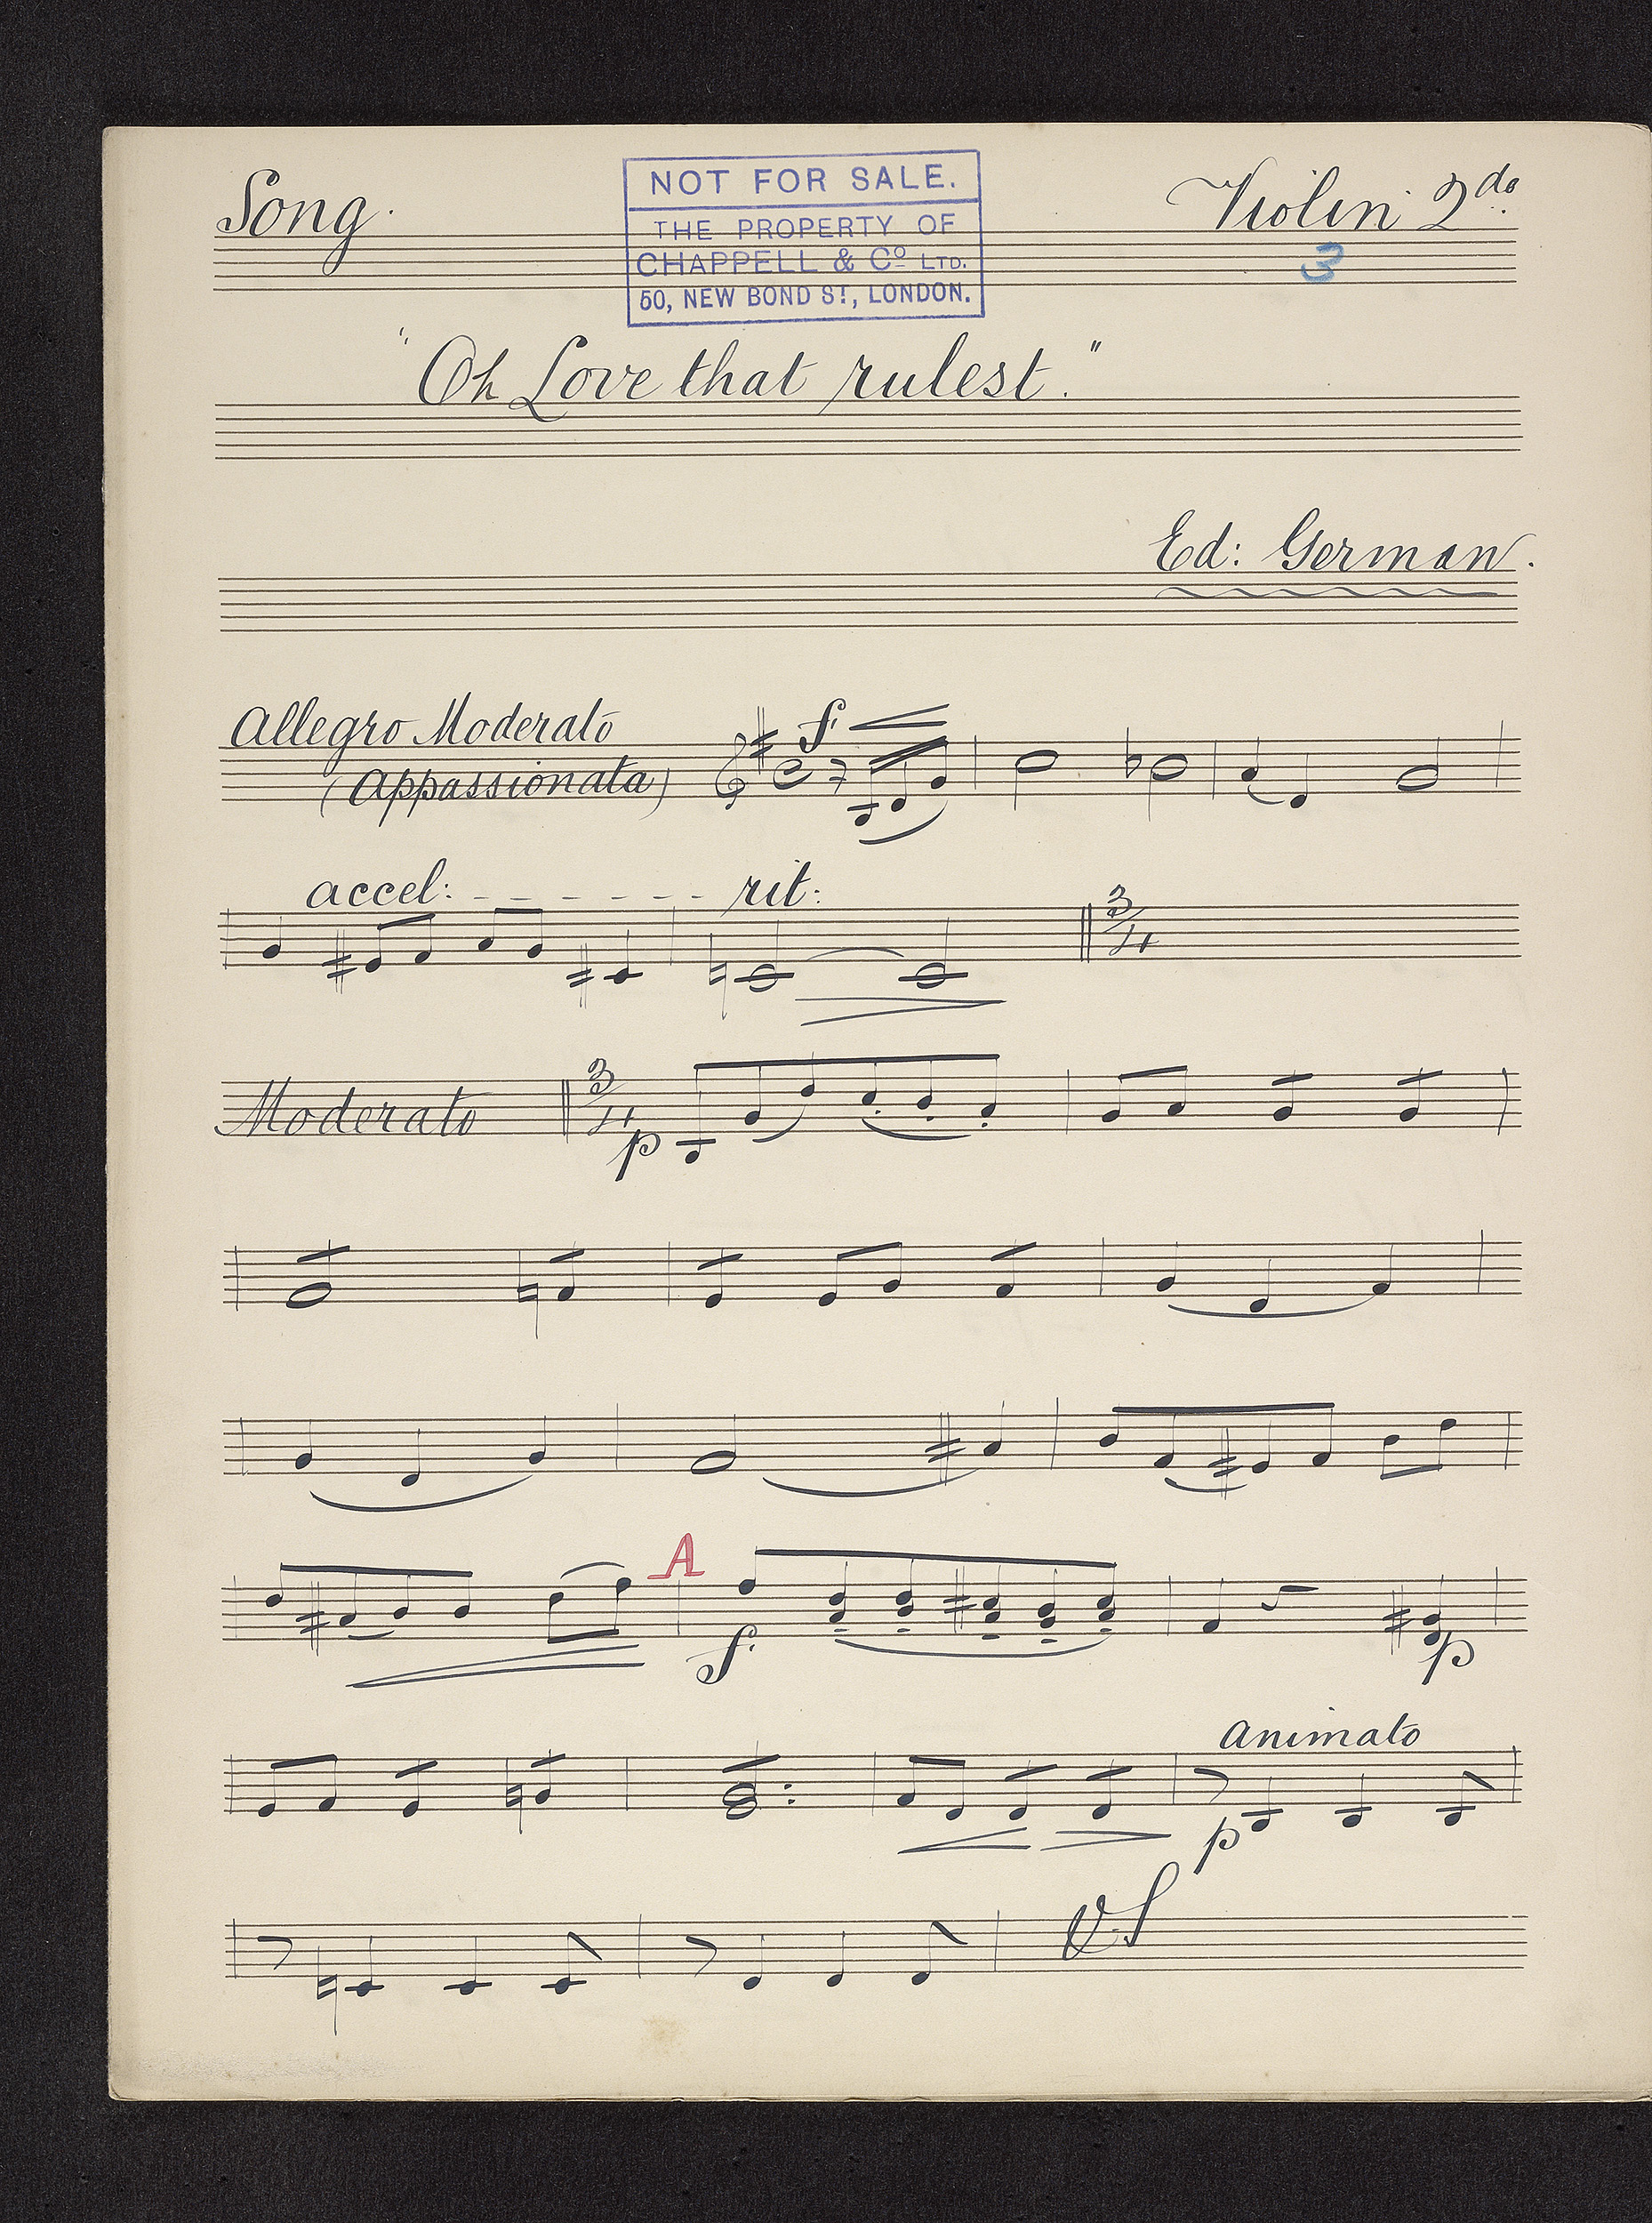 Song.
NOT FOR SALE.
THE PROPERTY OF
CHAPPELL & Cº LTD.
50, NEW BOND ST, LONDON.
Violin 2do
3
"Oh Love that rulest."
Ed: German.
Allegro Moderato
(Appassionata)
f
accel: - - - - - - - rit:
3/4
Moderato
3/4
p
A
f
p
animato
p
VS